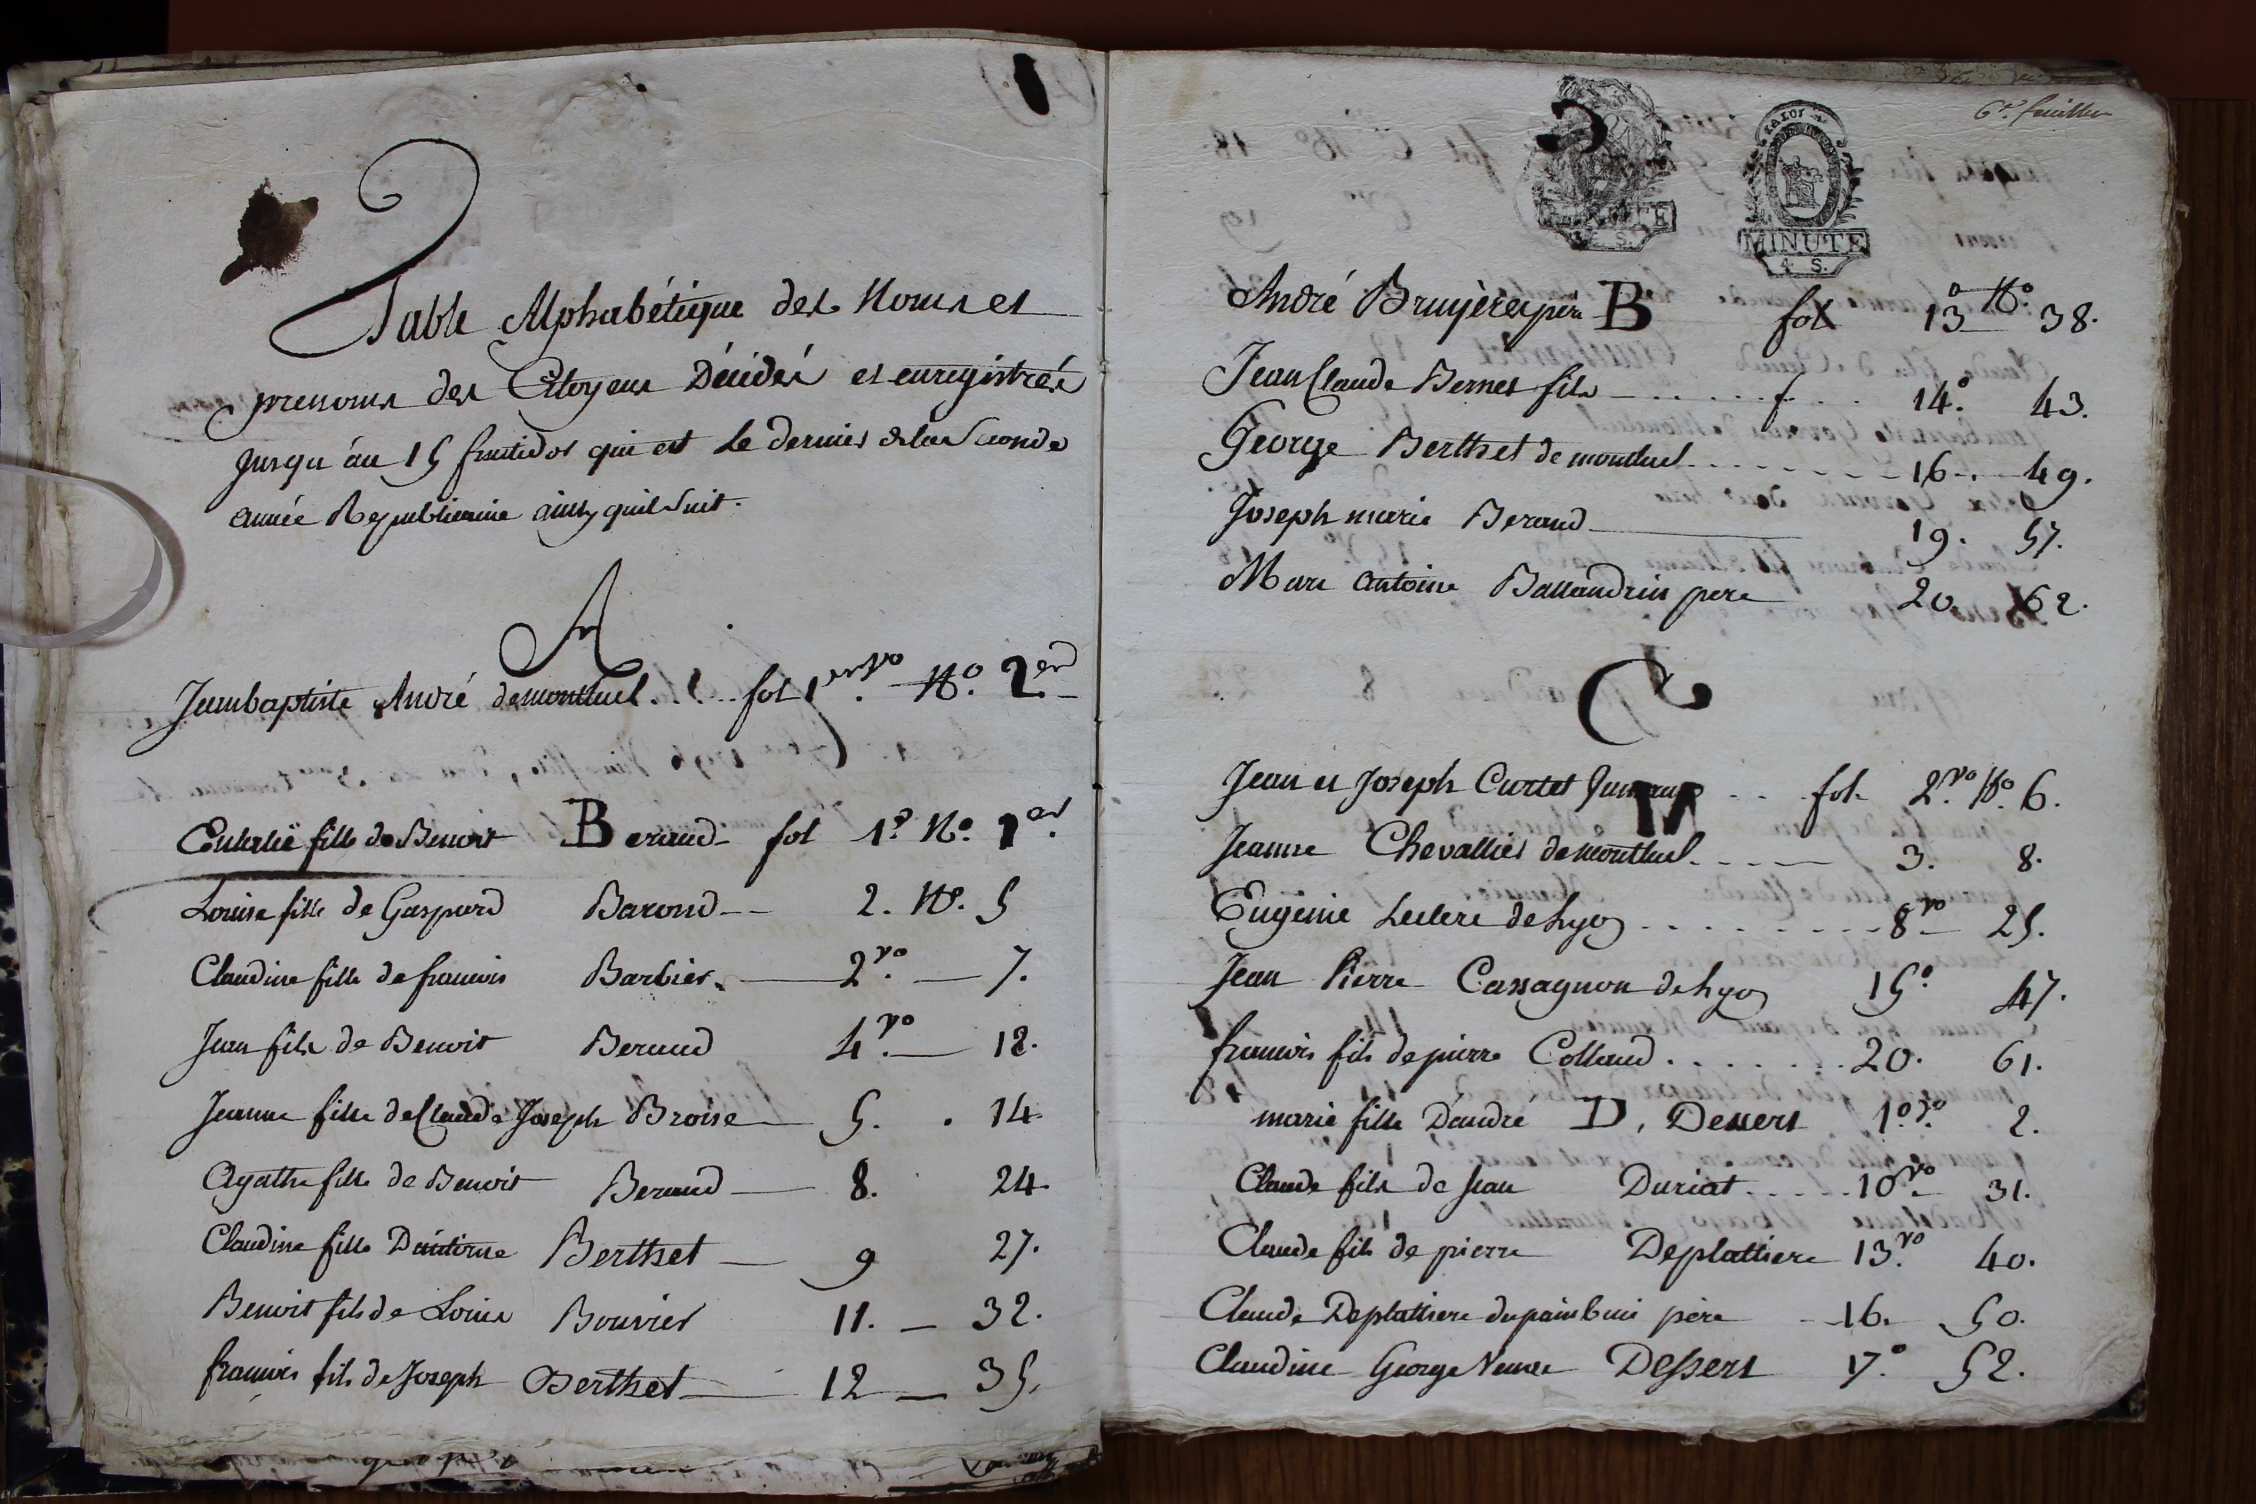 Table Alphabétique des Noms et
prenoms des Citoyens Décédés et enregistrés
jusqu'au 15 fructidor qui est le dernier de la seconde
année Republicaine ainsy quil suit.
A
Jeanbaptiste André de montluel.... fol 1er vo. No. 2end
Eulalie fille de Benoit Beraud fol 1o No. 1er.
Louise fille de Gaspard Barond 2. No. 5
Claudine fille de francois Barbier 2vo. 7.
Jean fils de Benoit Beraud 4vo. 12.
Jeanne fille de Claude Joseph Broise 5. 14
Agathe fille de Benoit Beraud 8. 24
Claudine fille D'antoine Berthet 9 27.
Benoit fils de Louis Bouvier 11. 32.
francois fils de Joseph Berthet 12 35.
6e. feuillet
LA LOI
MINUTE
4 S.
MINUTE
4 S.
André Bruyeres père B fol 13o No. 38.
Jean Claude Bernet fils f 14o. 43.
George Berthet de montluel 16. 49.
Joseph marie Beraud 19. 57.
Marc antoine Ballandrin pere 20 62.
C
Jean et Joseph Curtet Jumeaux fol. 2vo. No. 6.
Jeanne Chevallier de montluel 3. 8.
Eugenie Leclerc de Lyon 8vo 25.
Jean Pierre Cassagnon de Lyon 15o. 47.
francois fils de pierre Colland 20. 61.
marie fille D'andré D, Dessert 1o vo. 2.
Claude fils de Jean Duriat 10vo 31.
Claude fils de pierre Deplattiere 13vo. 40.
Claude Deplattiere père 16. 50.
Claudine George Veuve Dessert 17o. 52.